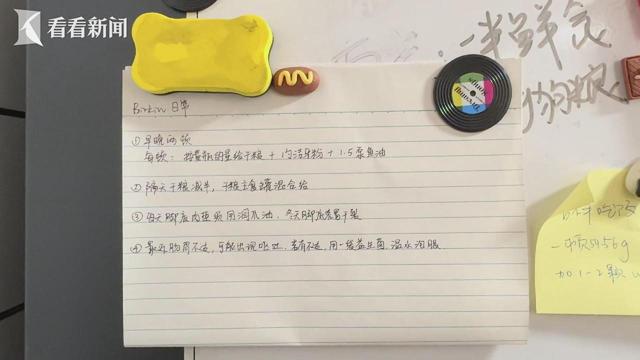 看看新闻
一半鲜食
狗粮
日常
① 早晚两顿
每顿: 按量杯的量给干粮 + 内洁牙粉 + 1.5泵鱼油
② 隔天干粮减半, 干粮主食罐混合给
③ 每天脚底肉垫要用润爪油, 冬天脚底容易干裂
④ 最近肠胃不适, 可能出现呕吐, 若有不适, 用一袋益生菌 温水泡服
吃
一顿
56g
加 1-2颗